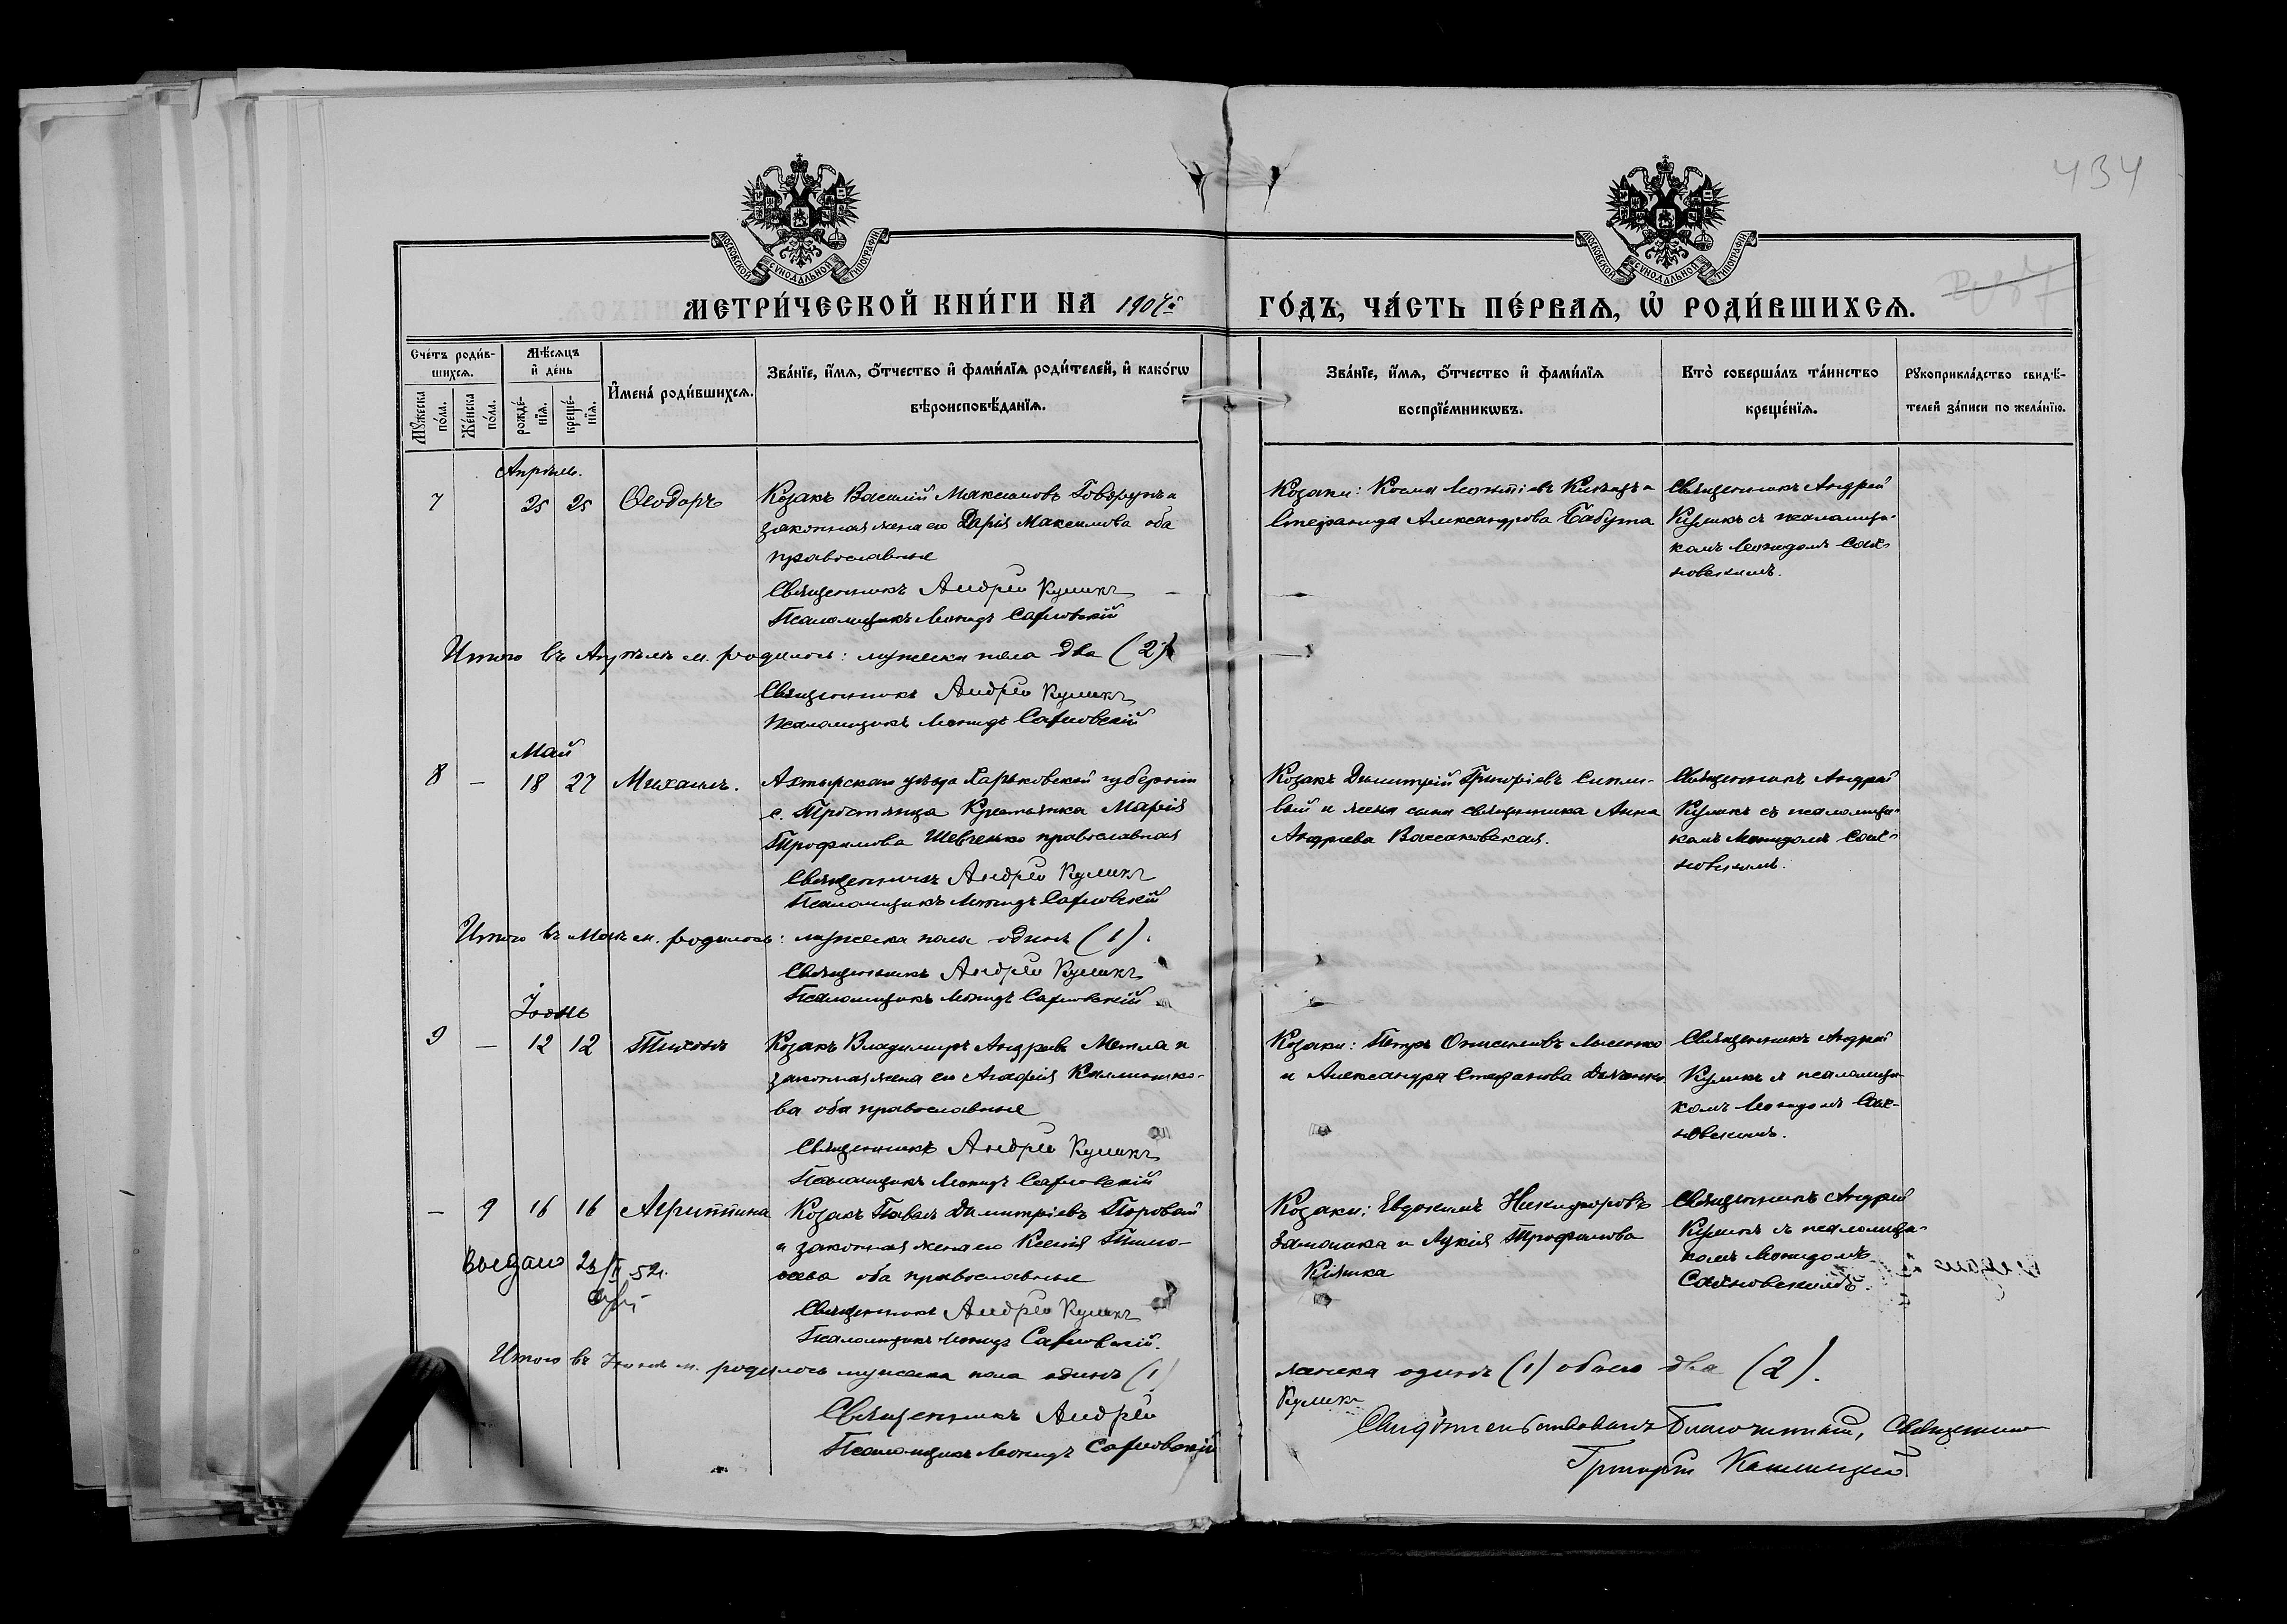 434
МОСКОВСКОЙ СѴНОДАЛЬНОЙ ТИПОГРАФІИ
МОСКОВСКОЙ СѴНОДАЛЬНОЙ ТИПОГРАФІИ
МЕТРИ́ЧЕСКОЙ КНИ́ГИ НА 1907й ГО́ДЪ, ЧА́СТЬ ПЕ́РВАѦ, Ѡ҆ РОДИ́ВШИХСѦ.
Сче́тъ роди́в-
шихсѧ.
Мꙋжеска по́ла.
Же́нска по́ла.
Мѣ́сѧцъ
и҆ де́нь
рожде́-
нїѧ.
креще́-
нїѧ.
И҆мена̀ роди́вшихсѧ.
Зва́нїе, и҆́мѧ, ѻ҆́тчество и҆ фами́лїѧ роди́телей, и҆ како́гѡ
вѣроисповѣ́данїѧ.
Зва́нїе, и҆́мѧ, ѻ҆́тчество и҆ фами́лїѧ
воспрїе́мникѡвъ.
Кто̀ соверша́лъ та́инство
креще́нїѧ.
Рꙋкоприкла́дство свидѣ́-
телей за́писи по жела́нїю.
Апрѣль.
7 25 25 Ѳеодоръ
Козакъ Василій Максимовъ Говорунъ и
законная жена его Дарія Максимова оба
православные
Священникъ Андрей Куликъ
Псаломщикъ Леонидъ Сахновскій
Козаки: Косма
Стефанида Александрова Бабута
Священникъ Андрей
Куликъ съ псаломщи-
комъ Леонидомъ Сах-
новскимъ.
Итого въ Апрѣлѣ м. родилось: мужеска пола два (2)
Священникъ Андрей Куликъ
Псаломщикъ Леонидъ Сахновскій
Май
8 – 18 27 Михаилъ.
Ахтырскаго уѣзда Харьковской губерніи
с. Тростянца Крестьянка Марія
Трофимова Шевченко православная
Священникъ Андрей Куликъ
Псаломщикъ Леонидъ Сахновскій
Козакъ Димитрій Григоріевъ Сипли-
вый и жена сына священника Анна
Андреева
Священникъ Андрей
Куликъ съ псаломщи-
комъ Леонидомъ Сах-
новскимъ.
Итого въ Маѣ м. родилось: мужеска пола одинъ (1).
Священникъ Андрей Куликъ
Псаломщикъ Леонидъ Сахновскій
Іюнь
9 – 12 12 Тихонъ
Козакъ Владимиръ Андреевъ Метла и
законная жена его Агафія
ва оба православные
Священникъ Андрей Куликъ
Псаломщикъ Леонидъ Сахновскій
Козаки: Петръ Онисимовъ Лысенко
и Александра Стефанова
Священникъ Андрей
Куликъ съ псаломщи-
комъ Леонидомъ Сах-
новскимъ.
– 9 16 16 Агриппина
Козакъ Павелъ Димитріевъ Боровой
и законная жена его Ксенія Тимо-
ѳеева оба православные
Священникъ Андрей Куликъ
Псаломщикъ Леонидъ Сахновскій.
Козаки: Евдокимъ Никифоровъ
и Лукія Трофимова
Кіяшка
Священникъ Андрей
Куликъ съ псаломщи-
комъ Леонидомъ
Сахновскимъ.
Выдано 23/II 52г.
Итого въ Іюнѣ м. родилось мужеска пола одинъ (1) женска одинъ (1) обоего два (2).
Священникъ Андрей Куликъ
Псаломщикъ Леонидъ Сахновскій
Свидѣтельствовалъ Благочинный, Священникъ
Григорій